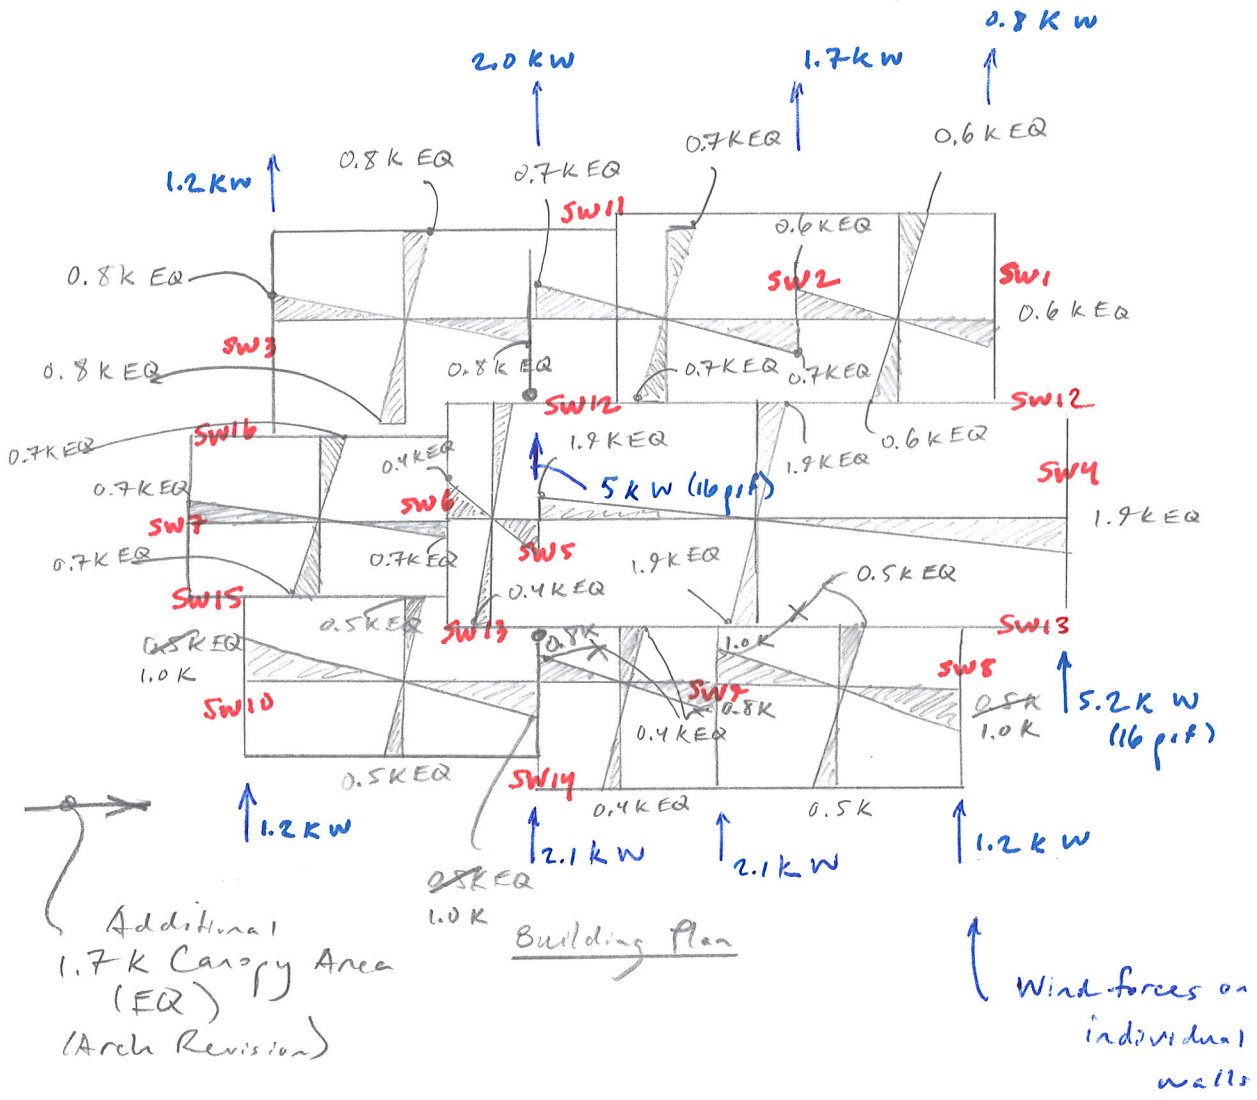 0.8 K W
2.0 K W
1.7 K W
0.6 K EQ
0.7 K EQ
0.8 K EQ
0.7 K EQ
1.2 K W
SW11
0.6 K EQ
0.8 K EQ
SW2
SW1
0.6 K EQ
SW3
0.8 K EQ
0.8 K EQ
0.7 K EQ
0.7 K EQ
SW12
SW12
SW16
0.7 K EQ
0.4 K EQ
1.9 K EQ
1.9 K EQ
0.6 K EQ
SW4
0.7 K EQ
SW6
5 K W (16 psf)
SW7
1.9 K EQ
0.7 K EQ
0.7 K EQ
SW5
1.9 K EQ
0.5 K EQ
SW15
0.4 K EQ
0.5 K EQ
SW13
SW13
0.5 K EQ
1.0 K
0.8 K
1.0 K
SW8
SW10
SW9
0.8 K
0.5 K
1.0 K
5.2 K W
(16 psf)
0.4 K EQ
0.5 K EQ
SW14
0.4 K EQ
0.5 K
1.2 K W
2.1 K W
2.1 K W
1.2 K W
0.5 K EQ
1.0 K
Building Plan
Additional
1.7 K Canopy Area
(EQ)
(Arch Revision)
Wind forces on
individual
walls